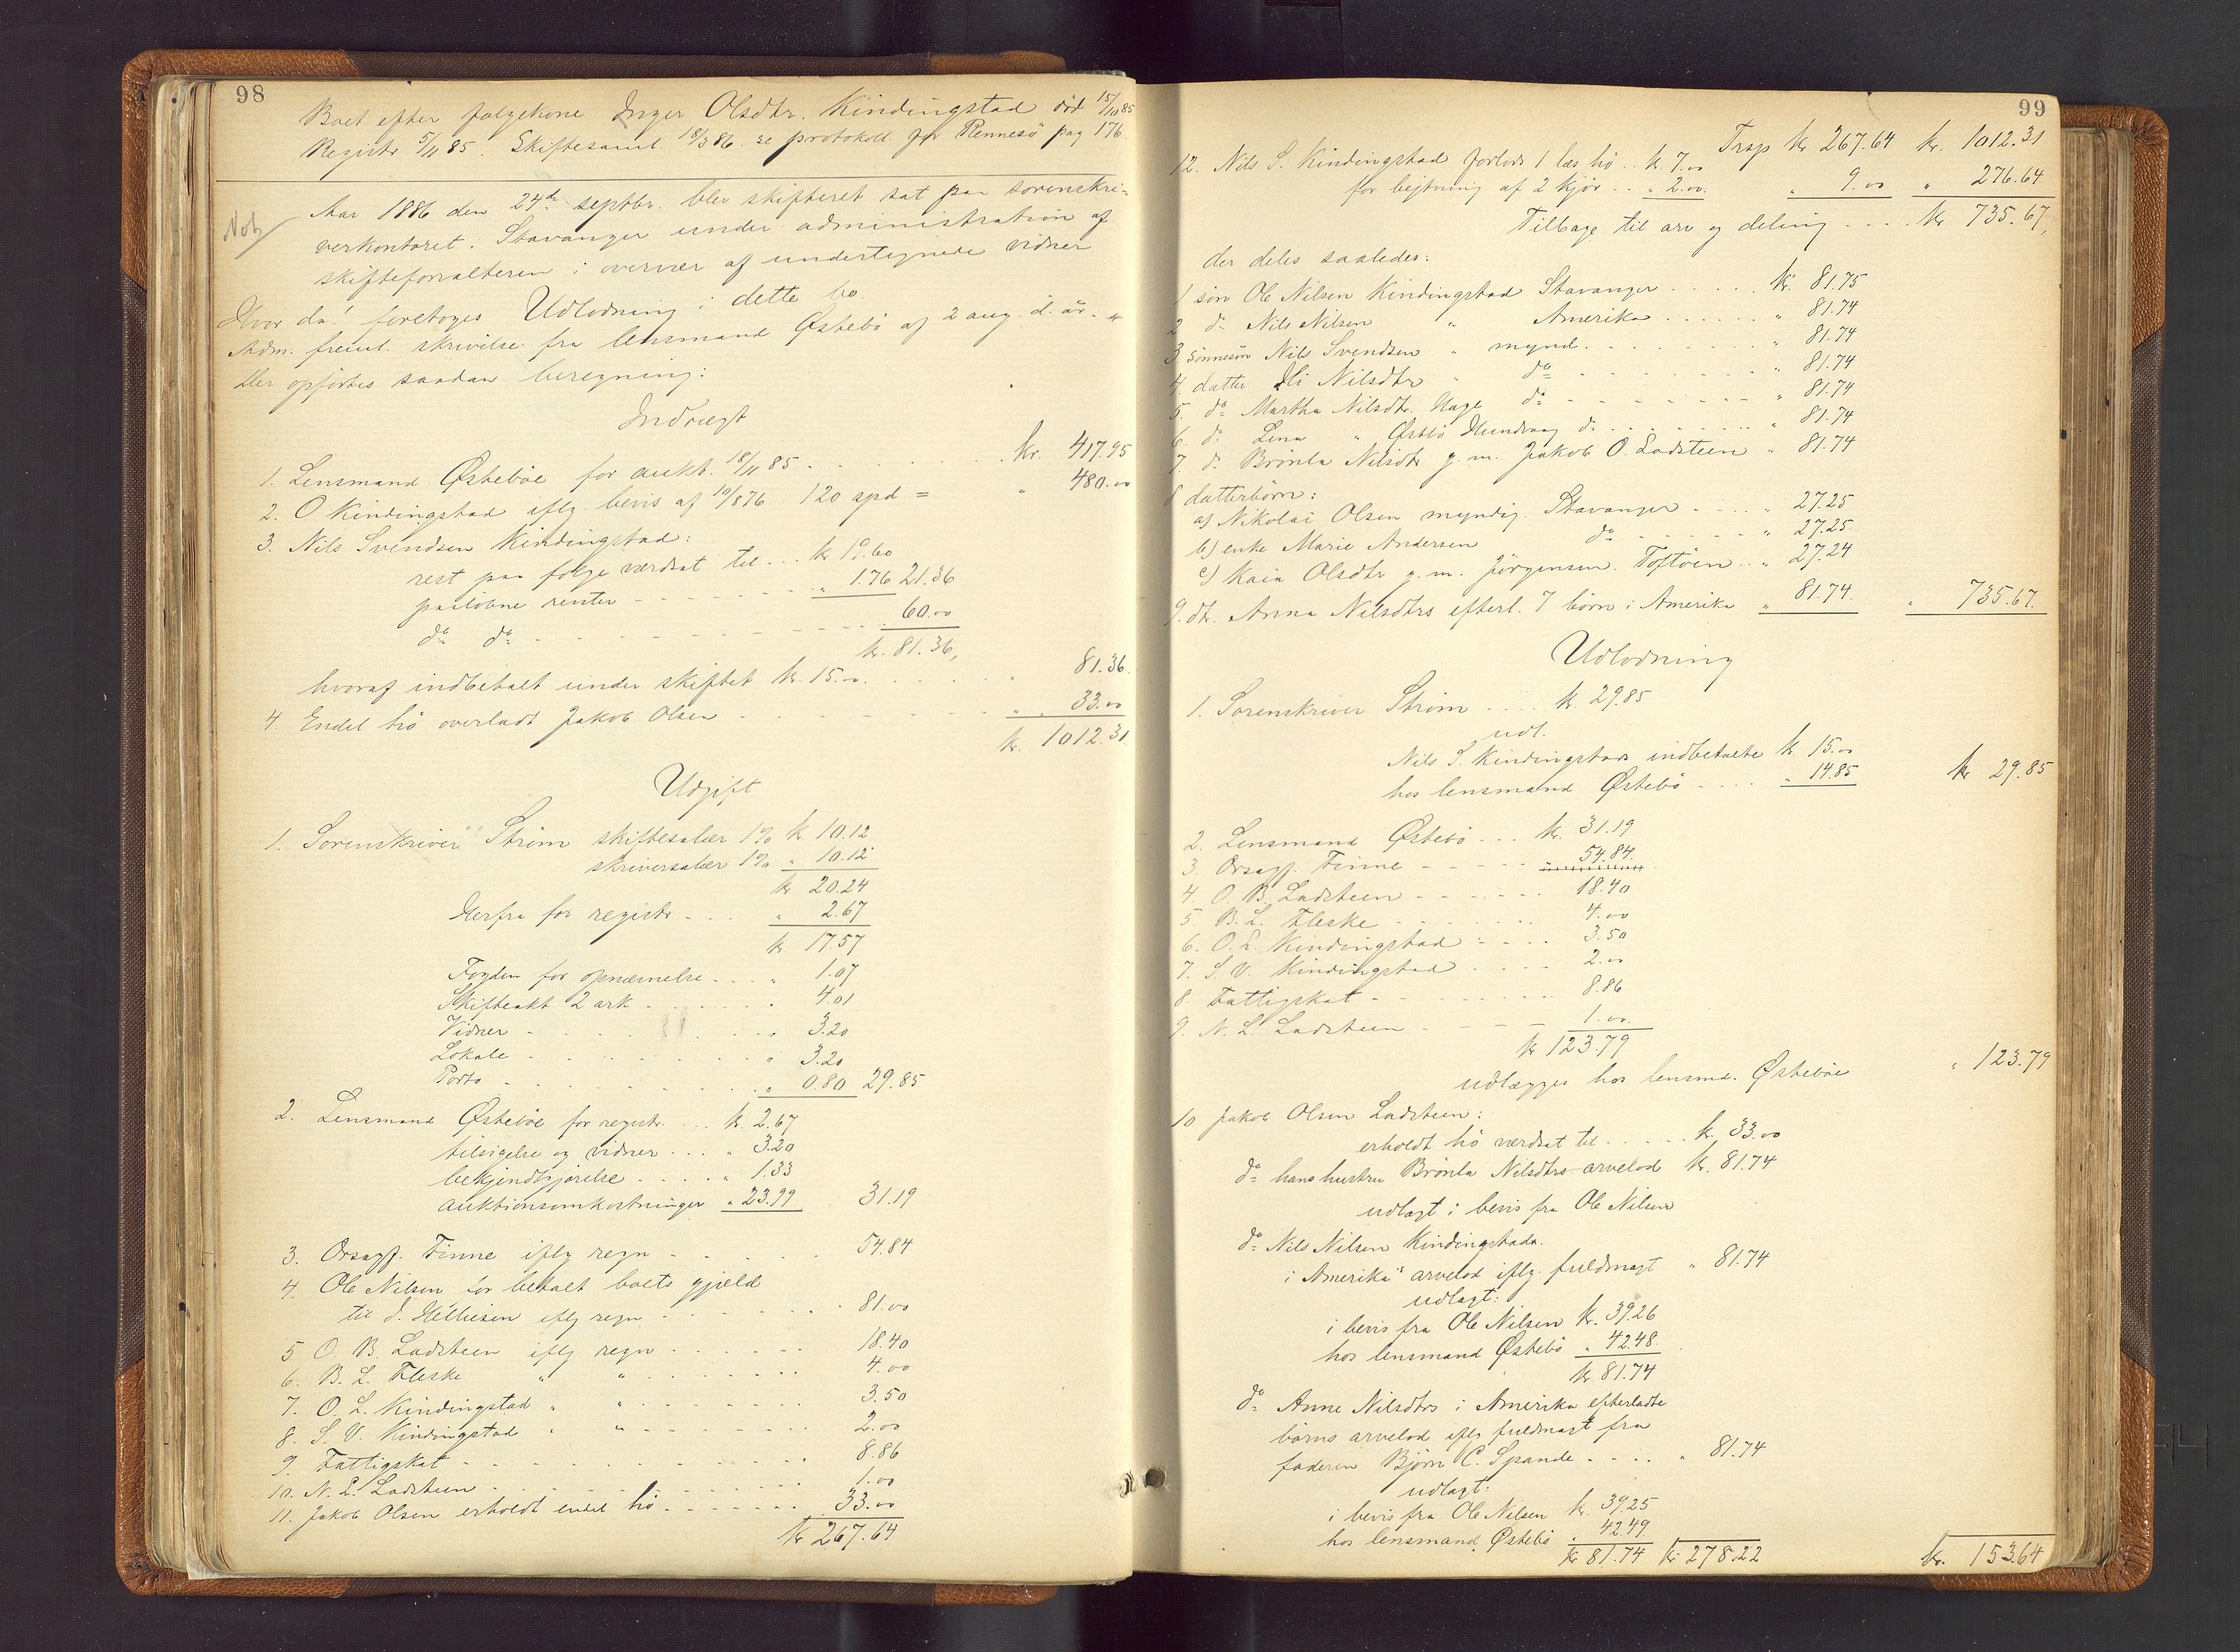 98
Boet efter følgekone Inger Olsdtr. Kindingstad död 15/10 85
Registr 5/11 85. Skiftesaml. 18/3 86. se protokoll for Rennesö pag 176.
Not
Aar 1886 den 24de septbr. blev skifteret sat paa sorenskri=
verkontoret i Stavanger under administration af
skifteforvalteren i overvær af undertegnede vidner
Hvor da! foretoges Udlodning i dette bo.
Adm. freml. skrivelse fra lensmand Østebö af 2 aug. d. år.
Der opförtes saadan beregning:
Indtægt
1. Lensmand Østeböe for aukt. 18/11 85 . . . . . . kr. 417.95
2. O Kindingstad iflg. bevis af 19/8 76 120 spd = " 480.00
3. Nils Svendsen Kindingstad:
rest paa følge værdsat til . . . kr 19.60
paalöbne renter - - - - " 1.76 21.36
do do - - - - - 60.00
kr. 81.36,
hvoraf indbetalt under skiftet kr. 15.00 . . . . . " 81.36.
4. Endel hö overladt Jakob Olsen - - - - - " 33.00
kr. 1012.31
Udgift
1. Sorenskriver Ström skiftesalær 1% kr 10.12
skriversalær 1% " 10.12
kr 20.24
Herfra for registr - - - " 2.67
kr 17.57
Fogden for opnævnelse . . . " 1.07
Skifteakt 2 ark - - - - " 4.01
Vidner - - - - " 3.20
Lokale - - - - " 3.20
Porto - - - - " 0.80 29.85
2. Lensmand Østeböe for registr. . . . kr. 2.67
tilsigelse og vidner . . . " 3.20
bekjendtgjörelse . . . . " 1.33
auktionsomkostninger " 23.99 31.19
3. Orsagf. Finne iflg regn - - - - 54.84
4. Ole Nilsen for betalt boets gjæld
til J. Helliesen iflg regn - - - - 81.00
5 O. B. Ladsteen iflg regn . . . . . . 18.40
6. B. L. Fleske " " . . . . . . 4.00
7. O. L. Kindingstad " " - - - - 3.50
8. S. V. Kindingstad " " - - - - 2.00
9. Fattigskat - - - - - 8.86
10. N. L. Ladsteen - - - - - 1.00
11. Jakob Olsen erholdt endel hö - - - - - 33.00
kr 267.64
99
Trsp kr 267.64 kr. 1012.31
12. Nils S. Kindingstad forlods 1 læs hö . . kr. 7.00
for beitning af 2 kjör . . " 2.00. " 9.00 " 276.64
Tilbage til arv og deling - - - - kr 735.67,
der deles saaledes:
1 sön Ole Nilsen Kindingstad Stavanger . . . . . kr. 81.75
2 do Nils Nilsen " Amerika . . . . . . " 81.74
3 sönnesön Nils Svendsen " mynd. - - - - " 81.74
4 datter Eli Nilsdtr " do - - - - " 81.74
5. do Martha Nilsdtr. Hage do - - - - " 81.74
6. do Lena " Østbö Hundvaag do - - - - " 81.74
7. do Brönla Nilsdtr g. m. Jakob O. Ladsteen " 81.74
8 datterbörn:
a) Nikolai Olsen myndig. Stavanger - - - - " 27.25
b) enke Marie Andersen do - - - - " 27.25
c) Kaia Olsdtr g. m. Jörgensen. Toftöen . . " 27.24
9. dtr. Anna Nilsdtrs efterl. 7 börn i Amerika " 81.74. " 735.67.
Udlodning
1. Sorenskriver Ström - - - - kr. 29.85
udl.
Nils S. Kindingstads indbetalte kr. 15.00
hos lensmand Østebö - - - - " 14.85 kr 29.85
2. Lensmand Østebö . . . kr. 31.19
3. Orsagf. Finne - - - - - 54.84.
4. O. B. Ladsteen - - - - - 18.40
5. B. L. Fleske - - - - - 4.00
6. O. L. Kindingstad - - - - 3.50
7. S. V. Kindingstad - - - - 2.00
8. Fattigskat - - - - - 8.86
9. N. L. Ladsteen - - - - 1.00
kr 123.79
udlægges hos lensmd. Østeböe " 123.79
10 Jakob Olsen Ladsteen:
erholdt hö værdsat til . . . . . kr. 33.00
do hans hustru Brönla Nilsdtrs arvelod kr. 81.74
udlagt i bevis fra Ole Nilsen
do Nils Nilsen Kindingstads.
i Amerika's arvelod iflg. fuldmagt " 81.74
udlagt:
i bevis fra Ole Nilsen kr. 39.26
hos lensmand Østebö " 42.48.
kr. 81.74
do Anne Nilsdtrs i Amerika efterladte
börns arvelod iflg fuldmagt fra
faderen Björn C. Spande - - - - " 81.74
udlagt:
i bevis fra Ole Nilsen kr. 39.25
hos lensmand Østebö " 42.49.
kr 81.74 kr 278.22 kr. 153.64